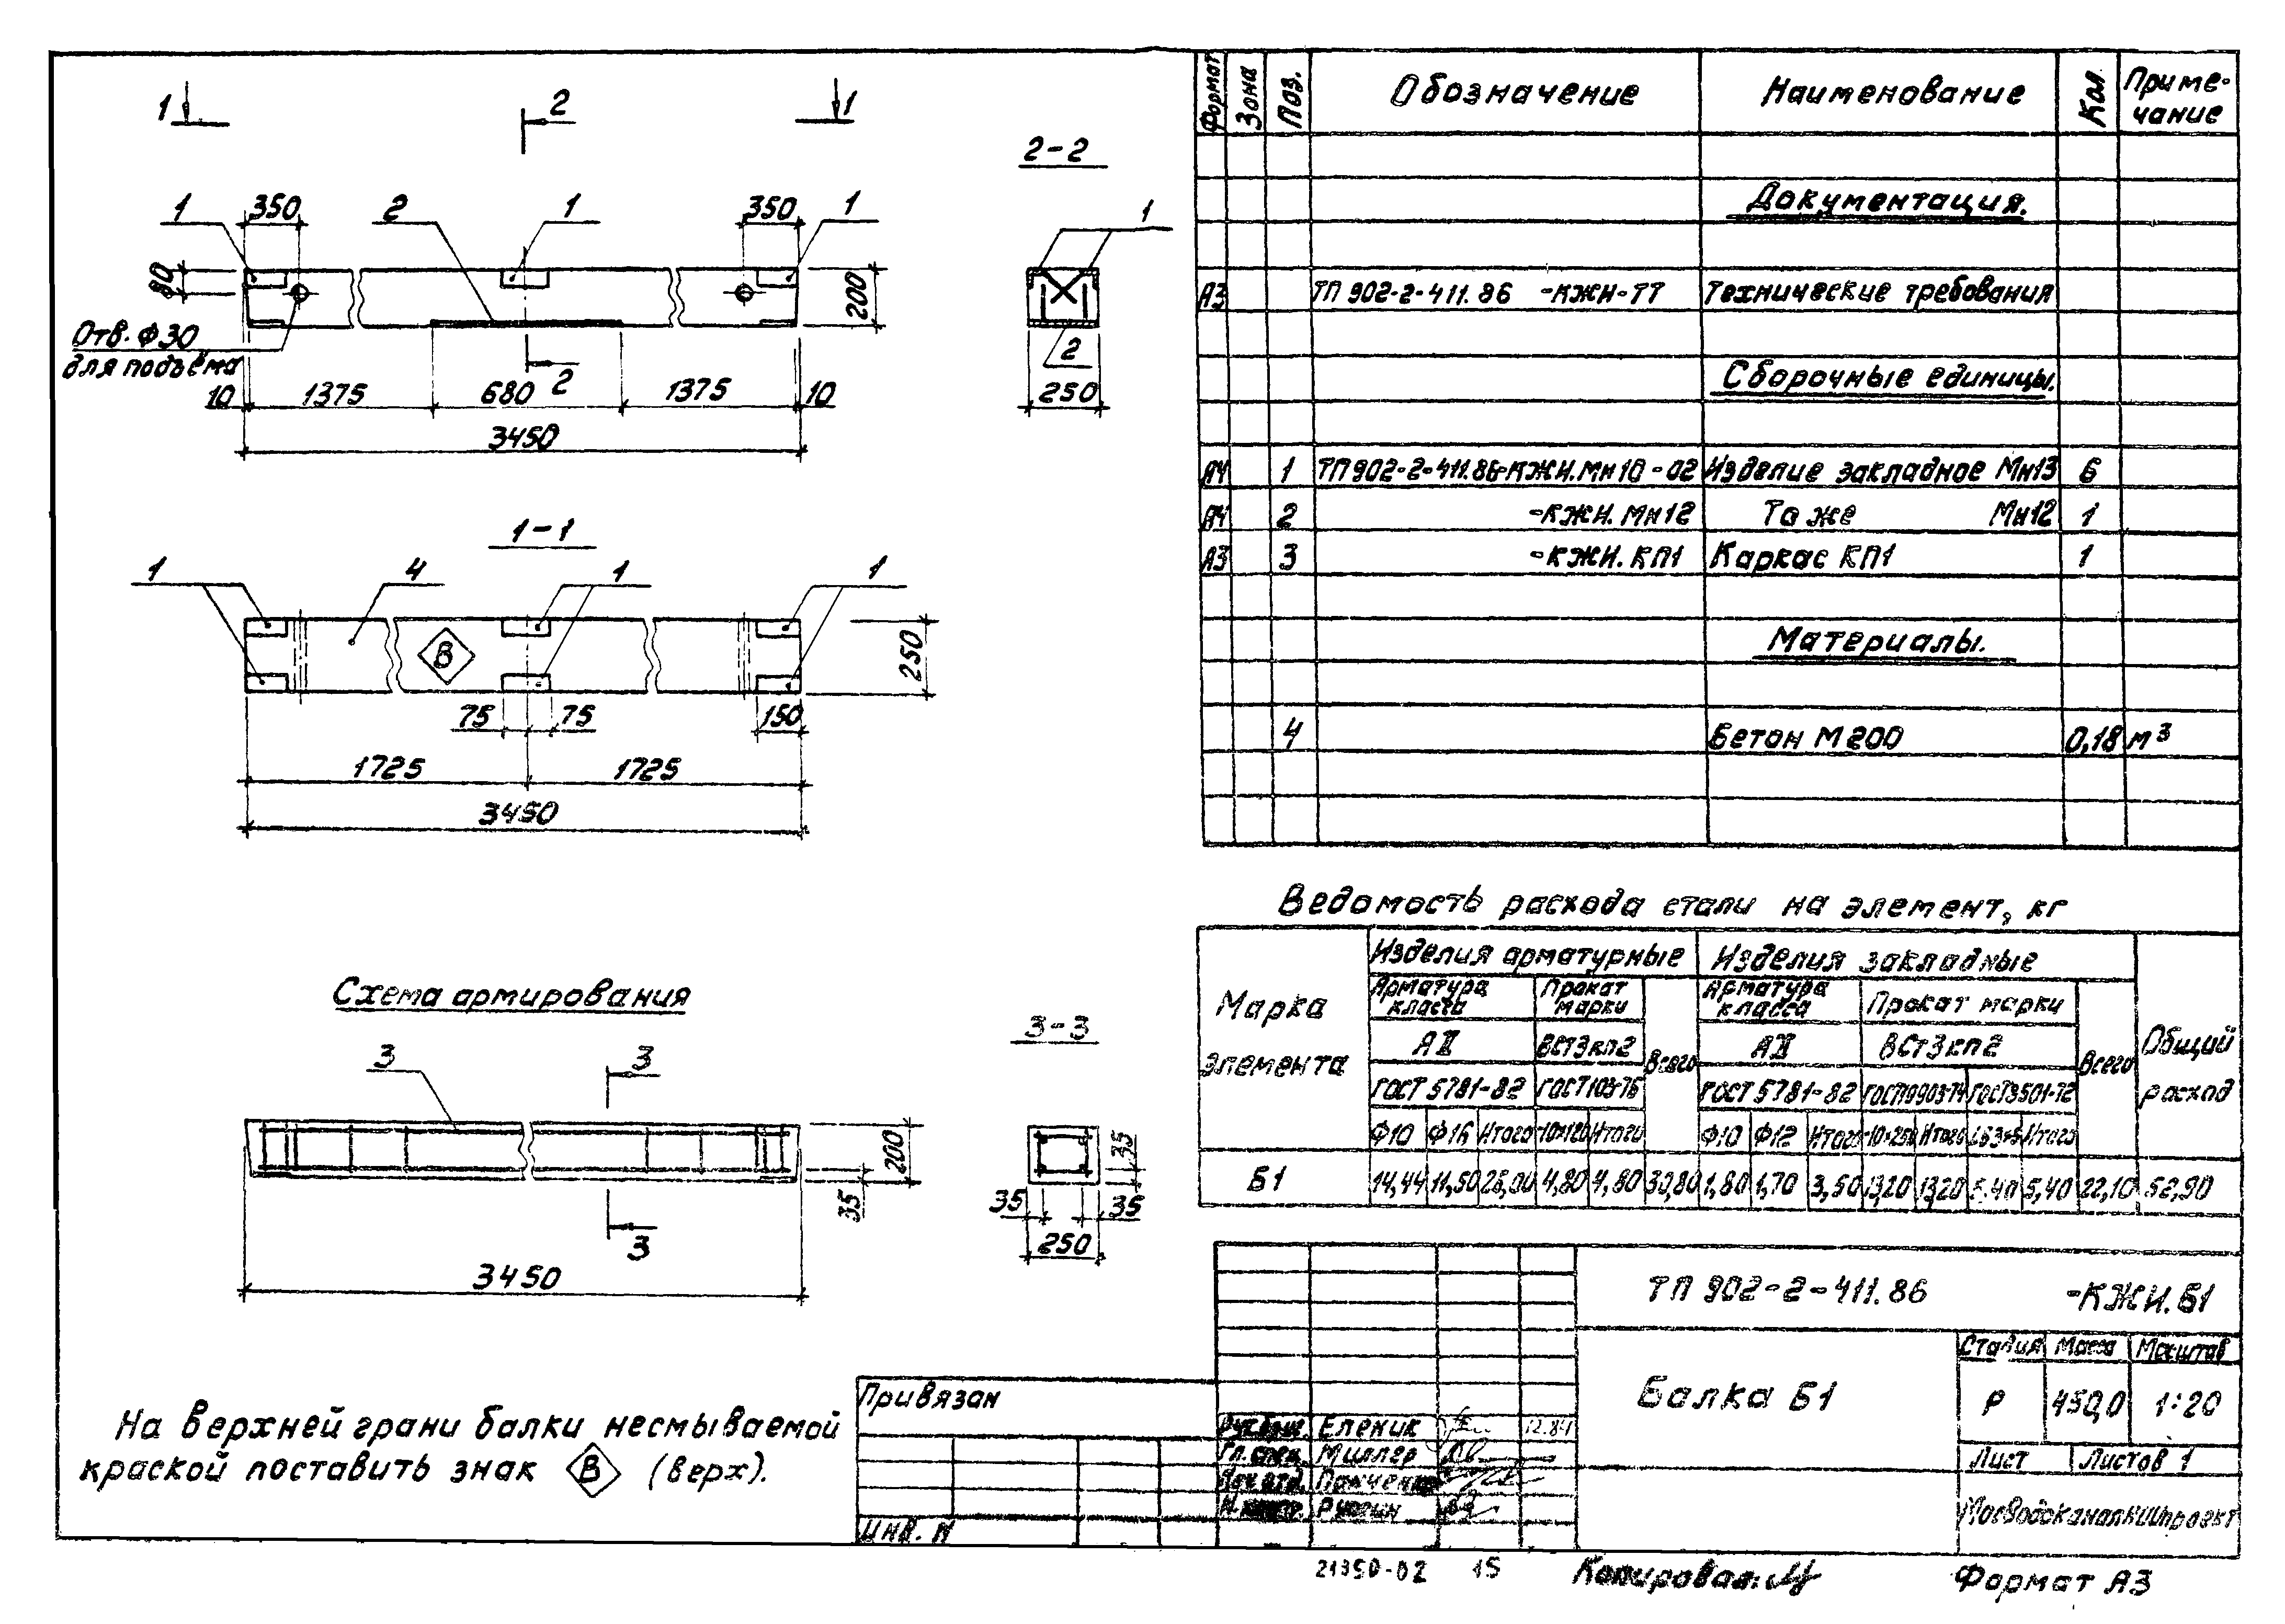 1 2 1
2-2
1 350 2 1 350 1
1
80
200
Отв. Ф30
для подъёма
2
10 1375 680 2 1375 10
250
3450
1-1
1 4 1 1
В
250
75 75 150
1725 1725
3450
Схема армирования
3-3
3 3
200
35
35
35 35
3
250
3450
На верхней грани балки несмываемой
краской поставить знак В (верх).
Формат Зона Поз. Обозначение Наименование Кол Приме-
чание
Документация.
А3 ТП 902-2-411.86 -КЖИ-ТТ Технические требования
Сборочные единицы.
А4 1 ТП902-2-411.86-КЖИ.МН10-02 Изделие закладное Мн13 6
А4 2 -КЖИ.Мн12 То же Мн12 1
А3 3 -КЖИ.КП1 Каркас КП1 1
Материалы.
4 Бетон М200 0,18 м³
Ведомость расхода стали на элемент, кг
Марка
элемента
Изделия арматурные Изделия закладные
Общий
расход
Арматура
класса
Прокат
марки
Всего
Арматура
класса
Прокат марки
Всего
АII ВСт3кп2 АII ВСт3кп2
ГОСТ 5781-82 ГОСТ103-76 ГОСТ 5781-82 ГОСТ19903-74 ГОСТ8501-72
Ф10 Ф16 Итого -10×120 Итого Ф10 Ф12 Итого -10×250 Итого L63×5 Итого
Б1 14,44 11,50 26,00 4,80 4,80 30,80 1,80 1,70 3,50 13,20 13,20 5,40 5,40 22,10 52,90
ТП 902-2-411.86 -КЖИ.Б1
Балка Б1
Стадия Масса Масштаб
Р 450,0 1:20
Лист Листов 1
МосводоканалНИИпроект
Привязан
Инв. N
Рук.бриг. Еленик 12.84
Гл.спец. Миллер
Нач.отд. Панченко
Н.контр.
21350-02 15 Копировал: Формат А3